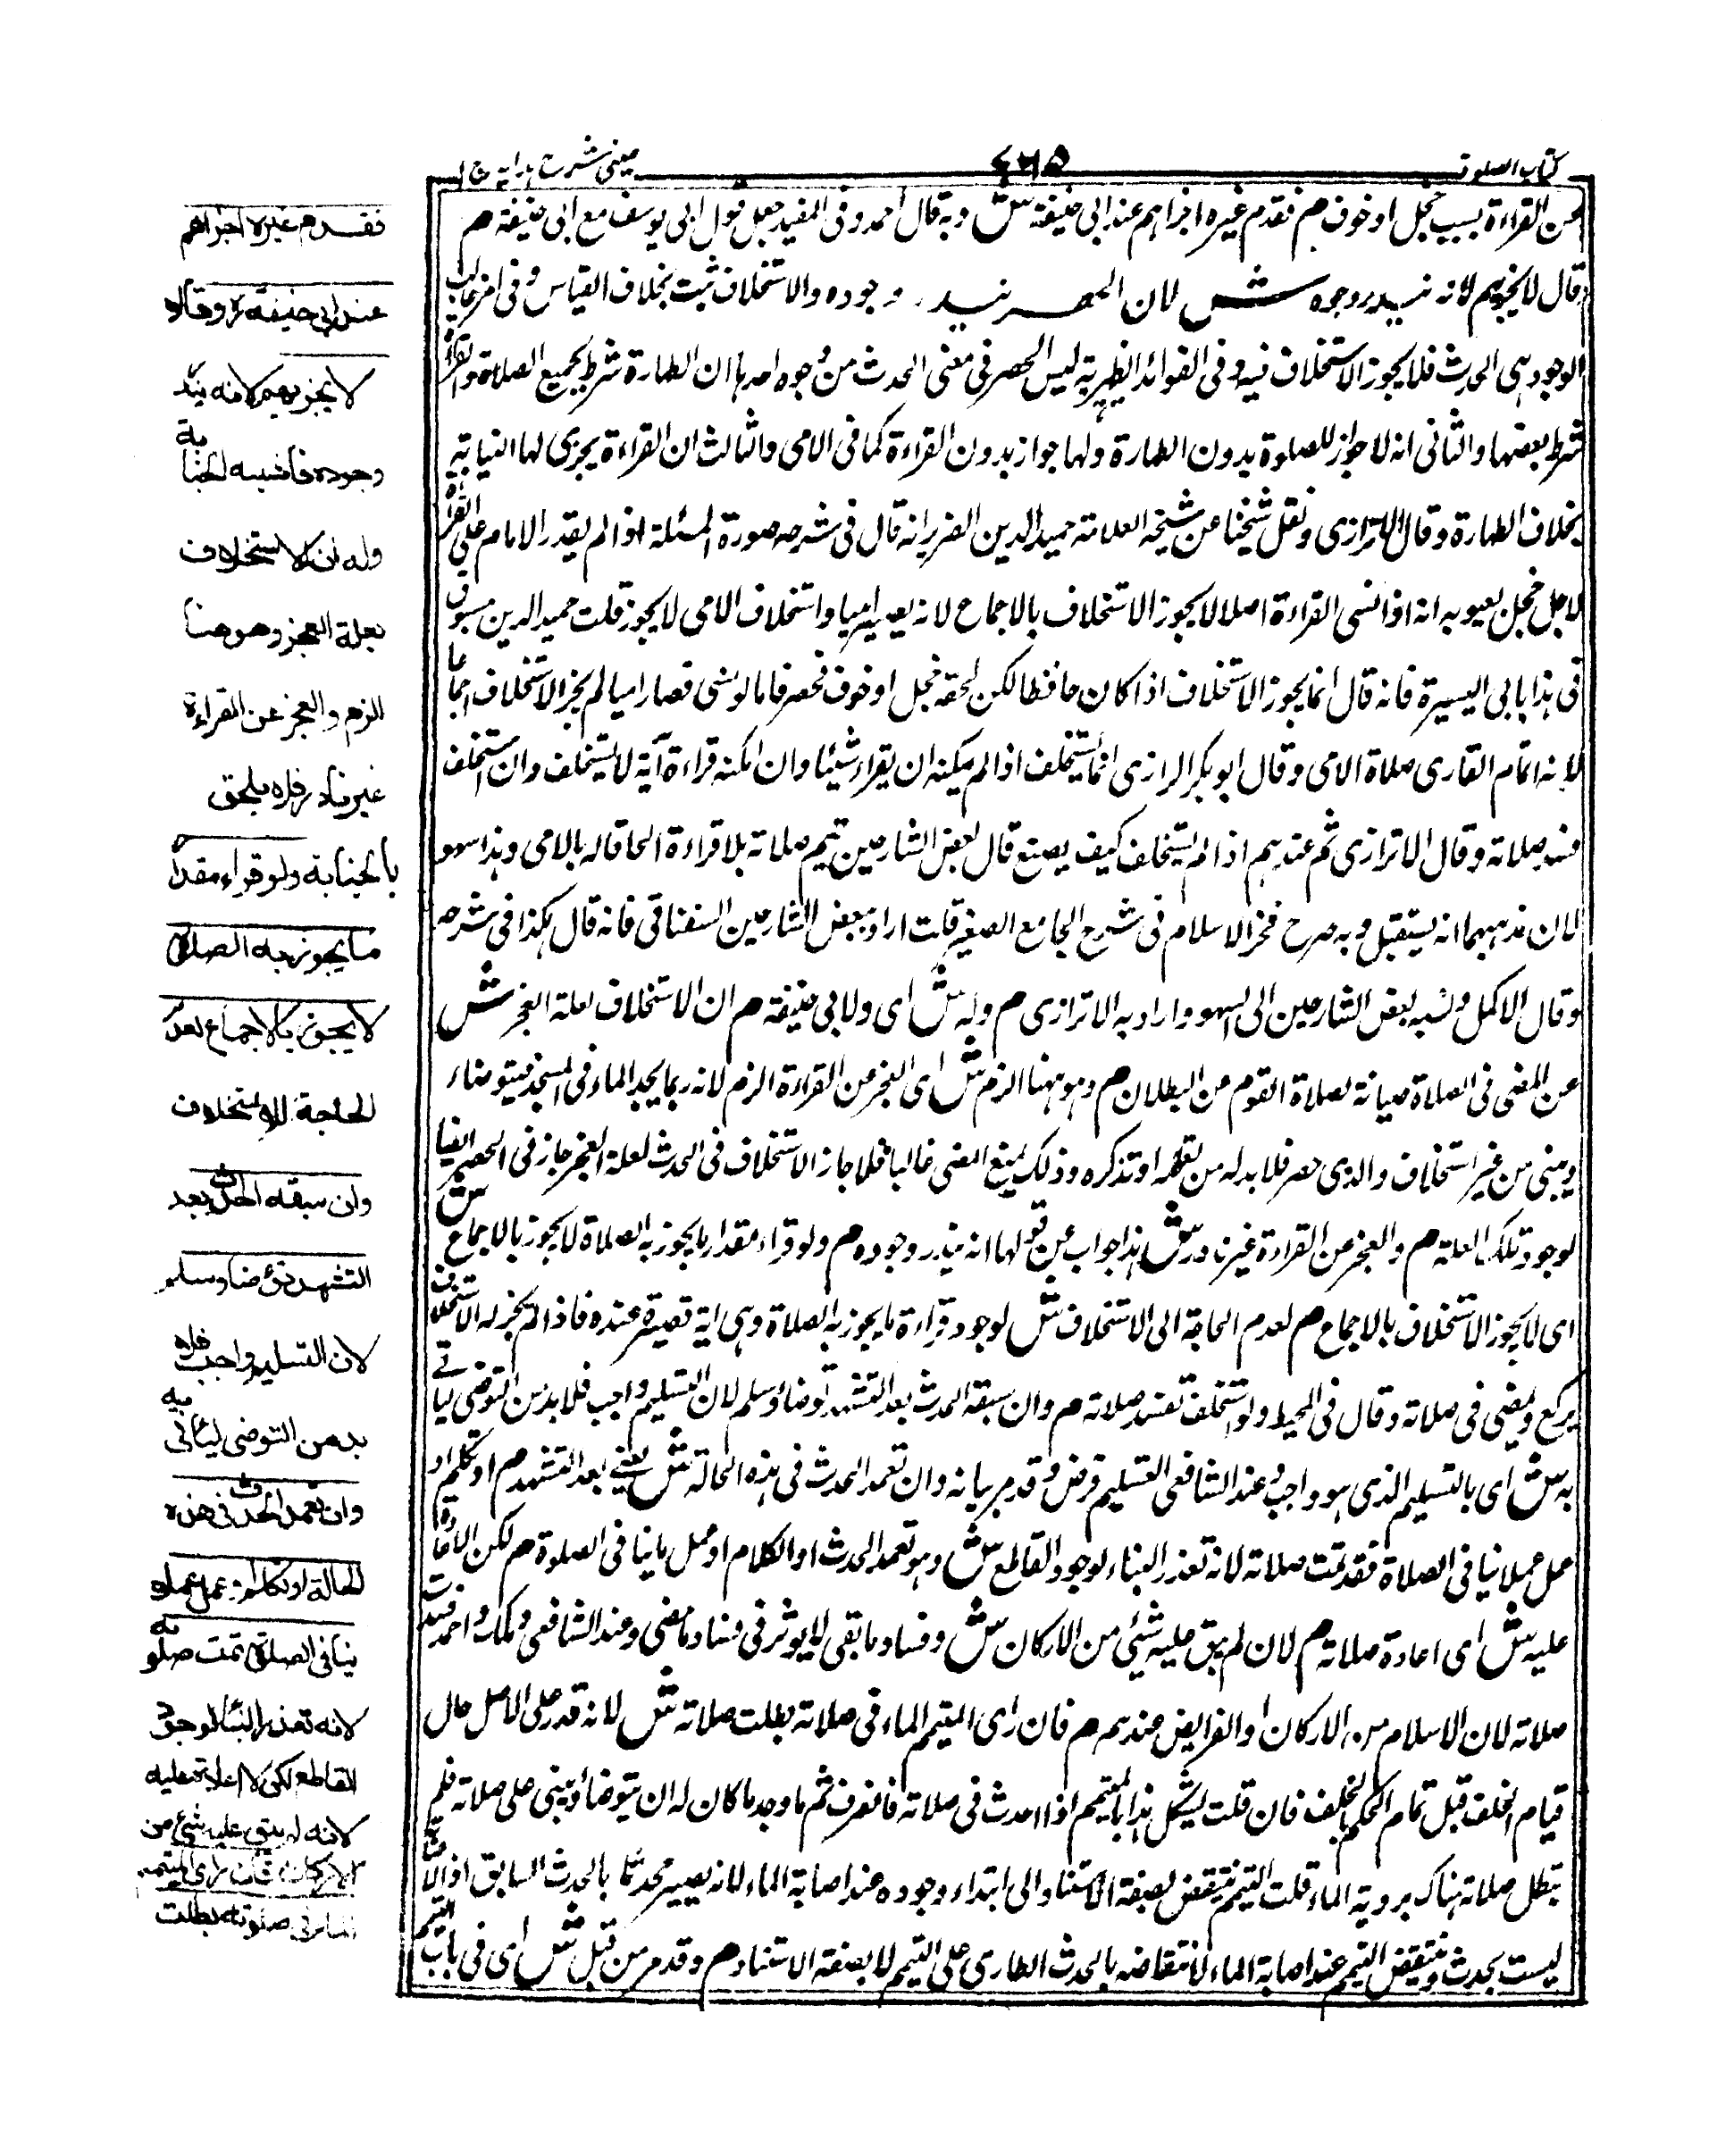 كتاب الصلوة
٤٦٥
عینی شرح ہدایہ ج ا
عن القراءة بسبب خجل او خوف م فقدم غيره اجزاهم عند ابى حنيفة ش وبه قال احمد وفى المفيد جعل قول ابى يوسف مع ابى حنيفة م
وقالا لا يجزيهم لانه يندر وجوده ش لان الحصر يندر وجوده والاستخلاف ثبت بخلاف القياس وفى امر غالب
الوجود هى الحدث فلا يجوز الاستخلاف فيه وفى الفوائد الظهيرية ليس الحصر فى معنى الحدث من وجوه احدها ان الطهارة شرط لجميع الصلاة والقراءة
شرط بعضها والثانى انه لا جواز للصلوة بدون الطهارة ولها جواز بدون القراءة كما فى الامى والثالث ان القراءة يجرى لها النيابة
بخلاف الطهارة وقال الاترازى ونقل شيخنا عن شيخه العلامة حميد الدين الضرير انه قال فى شرحه صورة المسئلة اذا لم يقدر الامام على القراءة
لاجل خجل يعيوبه انه اذا نسى القراءة اصلا لا يجوز الاستخلاف بالاجماع لانه يصير اميا واستخلاف الامى لا يجوز قلت حميد الدين مسبوق
فى هذا بابى اليسيرة فانه قال انما يجوز الاستخلاف اذا كان حافظا لكن لحقه خجل او خوف فحصر فاما لو نسى فصار اميا لم يجز الاستخلاف اجماعا
لانه اتمام القارى صلاة الامى وقال ابو بكر الرازى انما يستخلف اذا لم يمكنه ان يقراء شيئا وان امكنه قراءة آية لا يستخلف وان استخلف
فسد صلاته وقال الاترازى ثم عندهم اذا لم يستخلف كيف يصنع قال بعض الشارحين يتم صلاته بلا قراءة الحاقا له بالامى وهذا سهو
لان مذهبهما انه يستقبل وبه صرح فخر الاسلام فى شرح الجامع الصغير قلت اراد ببعض الشارحين السغناقى فانه قال هكذا فى شرحه
وقال الاكمل ونسبه بعض الشارحين الى السهو واراد به الاترازى م وله ش اى ولابى حنيفة م ان الاستخلاف لعلة العجز ش
عن المضى فى الصلاة صيانة لصلاة القوم من البطلان م وهو ههنا الزم ش اى العجز عن القراءة الزم لانه ربما يجد الماء فى المسجد فيتوضاء
ويبنى من غير استخلاف والذى حصر فلا بد له من تعلمه او تذكره وذلك يمنع المضى غالبا فلما جاز الاستخلاف فى الحدث لعلة العجز جاز فى الحصر ايضا
لوجود تلك العلة م والعجز عن القراءة غير نادر ش هذا جواب عن قولهما انه يندر وجوده م ولو قراء مقدار ما يجوز به الصلاة لا يجوز بالاجماع ش
اى لا يجوز الاستخلاف بالاجماع م لعدم الحاجة الى الاستخلاف ش لوجود قراءة ما يجوز به الصلاة وهى اية قصيرة عنده فاذا لم يجز له الاستخلاف
يركع ويمضى فى صلاته وقال فى المحيط ولو استخلف تفسد صلاته م وان سبقه الحدث بعد التشهد توضأ وسلم لان التسليم واجب فلا بد من التوضى لياتى
به ش اى بالتسليم الذى هو واجب وعند الشافعى التسليم فرض وقد مر بيانه وان تعمد الحدث فى هذه الحالة ش يعنى بعد التشهد م او تكلم او
عمل عملا ينافى الصلاة فقد تمت صلاته لانه تعذر البناء لوجود القاطع ش وهو تعمد الحدث او الكلام او عمل ما ينافى الصلوة م لكن لا اعادة
عليه ش اى اعادة صلاته م لان لم يبق عليه شئ من الاركان ش وفساد ما بقى لا يوثر فى فساد ما مضى وعند الشافعى ومالك واحمد فسدت
صلاته لان الاسلام من الاركان او الفرايض عندهم م فان راى المتيمم الماء فى صلاته بطلت صلاته ش لانه قدر على الاصل حال
قيام الخلف قبل تمام الحكم بالخلف فان قلت يشكل هذا بالمتيمم اذا احدث فى صلاته فانصرف ثم ما وجد ما كان له ان يتوضأ ويبنى على صلاته فلم
تبطل صلاته هناك بروية الماء قلت التيمم ينتقض بصفة الاستناد الى ابتداء وجوده عند اصابة الماء لانه يصير محدثا بالحدث السابق اذ الاصابة
ليست بحدث وينتقض التيمم عند اصابة الماء لانتقاضه بالحدث الطارى على التيمم لا بصفة الاستناد م وقد مر من قبل ش اى فى باب التيمم
فقدم غيره اجزاهم
عند ابى حنيفة رح وقالا
لا يجزيهم لانه يند
وجوده فاشبه الجنابة
وله ان الاستخلاف
بعلة العجز وهو هنا
الزم والعجز عن القراءة
غير نادر فلا يلحق
بالجنابة ولو قراء مقدار
ما يجوز به الصلاة
لا يجوز بالاجماع لعدم
الحاجة الى الاستخلاف
وان سبقه الحدث بعد
التشهد توضا وسلم
لان التسليم واجب فلا
بد من التوضى ليأتى به
وان تعمد الحدث فى هذه
الحالة او تكلم او عمل عملا
ينافى الصلوة تمت صلوته
لانه تعذر البناء لوجود
القاطع لكن لا اعادة عليه
لانه لم يبق عليه شئ من
الاركان فان راى المتيمم
الماء فى صلوته بطلت